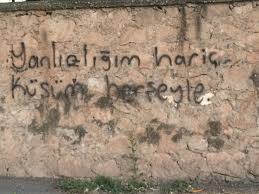 Yanlızlığım hariç
Küsüm herşeyle